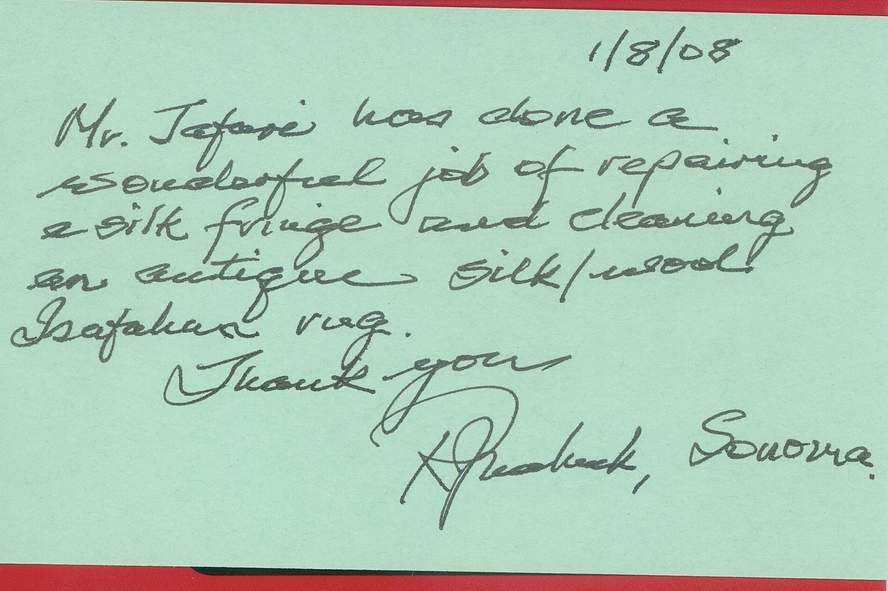 1/8/08
Mr. Jafari has done a
wonderful job of repairing
a silk fringe and cleaning
an antique silk/wool
Isafahan rug.
Thank you
Sonoma.